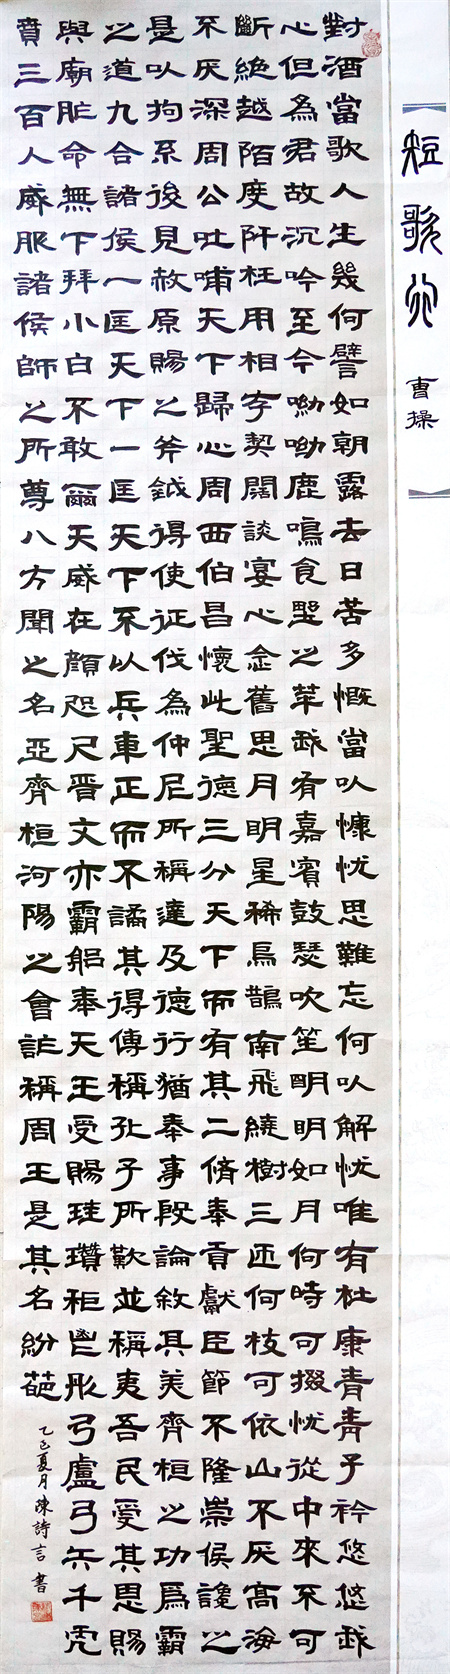 短歌行
曹操
對酒當歌人生幾何譬如朝露去日苦多慨當以慷忧思難忘何以解忧唯有杜康青青子衿悠悠我
心但為君故沉吟至今呦呦鹿鳴食埜之苹我有嘉賓鼓瑟吹笙明明如月何時可掇忧從中來不可
斷絶越陌度阡枉用相存契闊談宴心念舊恩月明星稀烏鵲南飛繞樹三匝何枝可依山不厌高海
不厌深周公吐哺天下歸心周西伯昌懷此聖德三分天下而有其二脩奉貢獻臣節不隆崇侯讒之
是以拘系後見赦原賜之斧鉞得使征伐為仲尼所稱達及德行猶奉事殷論敘其美齊桓之功爲霸
之道九合諸侯一匡天下一匡天下不以兵車正而不譎其得傳稱孔子所歎並稱夷吾民受其恩賜
與廟胙命無下拜小白不敢爾天威在顏咫尺晉文亦霸躬奉天王受賜珪瓚秬鬯彤弓盧弓矢千虎
賁三百人威服諸侯師之所尊八方聞之名亞齊桓河陽之會詐稱周王是其名紛葩
乙巳夏月陳詩言書